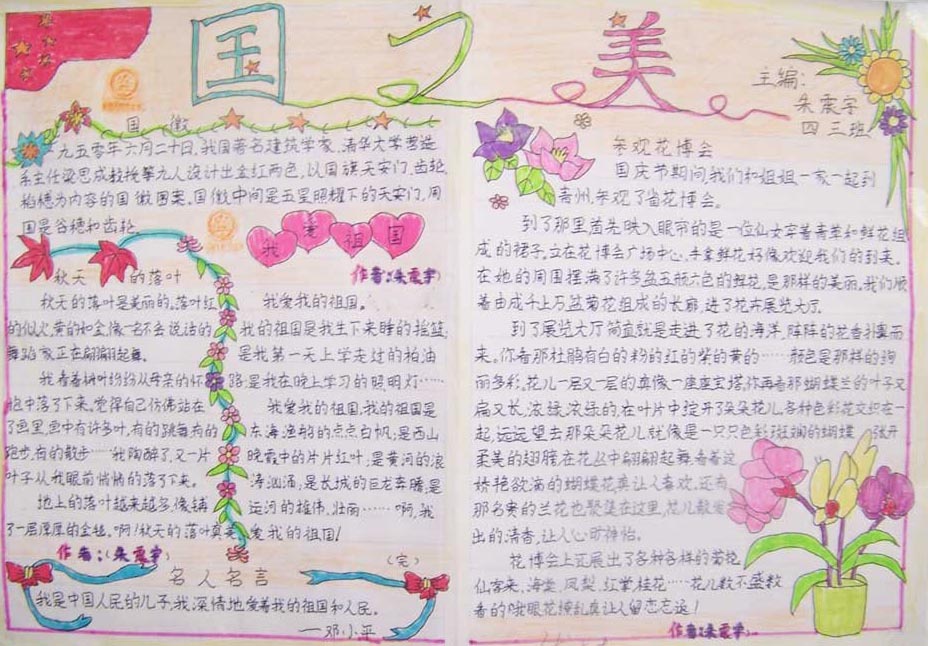 国之美
主编:
朱震宇
四三班
国徽
一九五零年六月二十日,我国著名建筑学家、清华大学营造
系主任梁思成教授等九人设计出金红两色,以国旗天安门、齿轮、
稻穗为内容的国徽图案。国徽中间是五星照耀下的天安门,周
围是谷穗和齿轮
秋天的落叶
秋天的落叶是美丽的。落叶红
的似火,黄的和金像一名不会说话的
舞蹈家正在翩翩起舞。
我看着树叶纷纷从母亲的怀
抱中落了下来。觉得自己仿佛站在
了画里,画中有许多叶,有的跳舞,有的
跑步,有的散步……我陶醉了,又一片
叶子从我眼前悄悄的落了下来。
地上的落叶越来越多,像铺
了一层厚厚的金毯。啊!秋天的落叶真美
作者:(朱震宇)
我爱祖国
作者:朱震宇
我爱我的祖国。
我的祖国是我生下来睡的摇篮;
是我第一天上学走过的柏油
路;是我在晚上学习的照明灯……
我爱我的祖国,我的祖国是
东海渔船的点点白帆;是西山
晚霞中的片片红叶,是黄河的浪
涛汹涌,是长城的巨龙奔腾;是
运河的雄伟,壮丽……啊,我
爱我的祖国!
(完)
名人名言
我是中国人民的儿子,我深情地爱着我的祖国和人民。
——邓小平
参观花博会
国庆节期间,我们和姐姐一家一起到
青州,参观了省花博会。
到了那里首先映入眼帘的是一位仙女穿着青草和鲜花组
成的裙子,立在花博会广场中心,手拿鲜花好像欢迎我们的到来。
在她的周围摆满了许多盆五颜六色的鲜花,是那样的美丽。我们顺
着由成千上万盆菊花组成的长廊,进了花卉展览大厅。
到了展览大厅简直就是走进了花的海洋,阵阵的花香扑鼻而
来。你看那杜鹃有白的粉的红的紫的黄的……颜色是那样的绚
丽多彩,花儿一层又一层的真像一座座宝塔。你再看那蝴蝶兰的叶子又
扁又长,浓绿,浓绿的,在叶片中绽开了朵朵花儿,各种色彩花交织在一
起,远远望去那朵朵花儿就像是一只只色彩斑斓的蝴蝶,张开
柔美的翅膀,在花丛中翩翩起舞,看着这
娇艳欲滴的蝴蝶花真让人喜欢,还有
那名寒的兰花也聚集在这里,花儿散发
出的清香,让人心旷神怡。
花博会上还展出了各种各样的菊花,
仙客来,海棠,凤梨,红掌,桂花……花儿数不盛数
看的哦眼花缭乱真让人留恋忘返!
作者:朱震宇